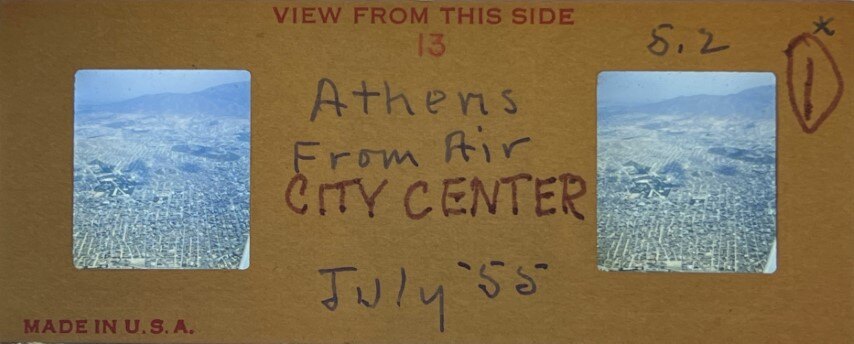 VIEW FROM THIS SIDE
13
5.2
*
1
Athens
From Air
CITY CENTER
July '55
MADE IN U.S.A.